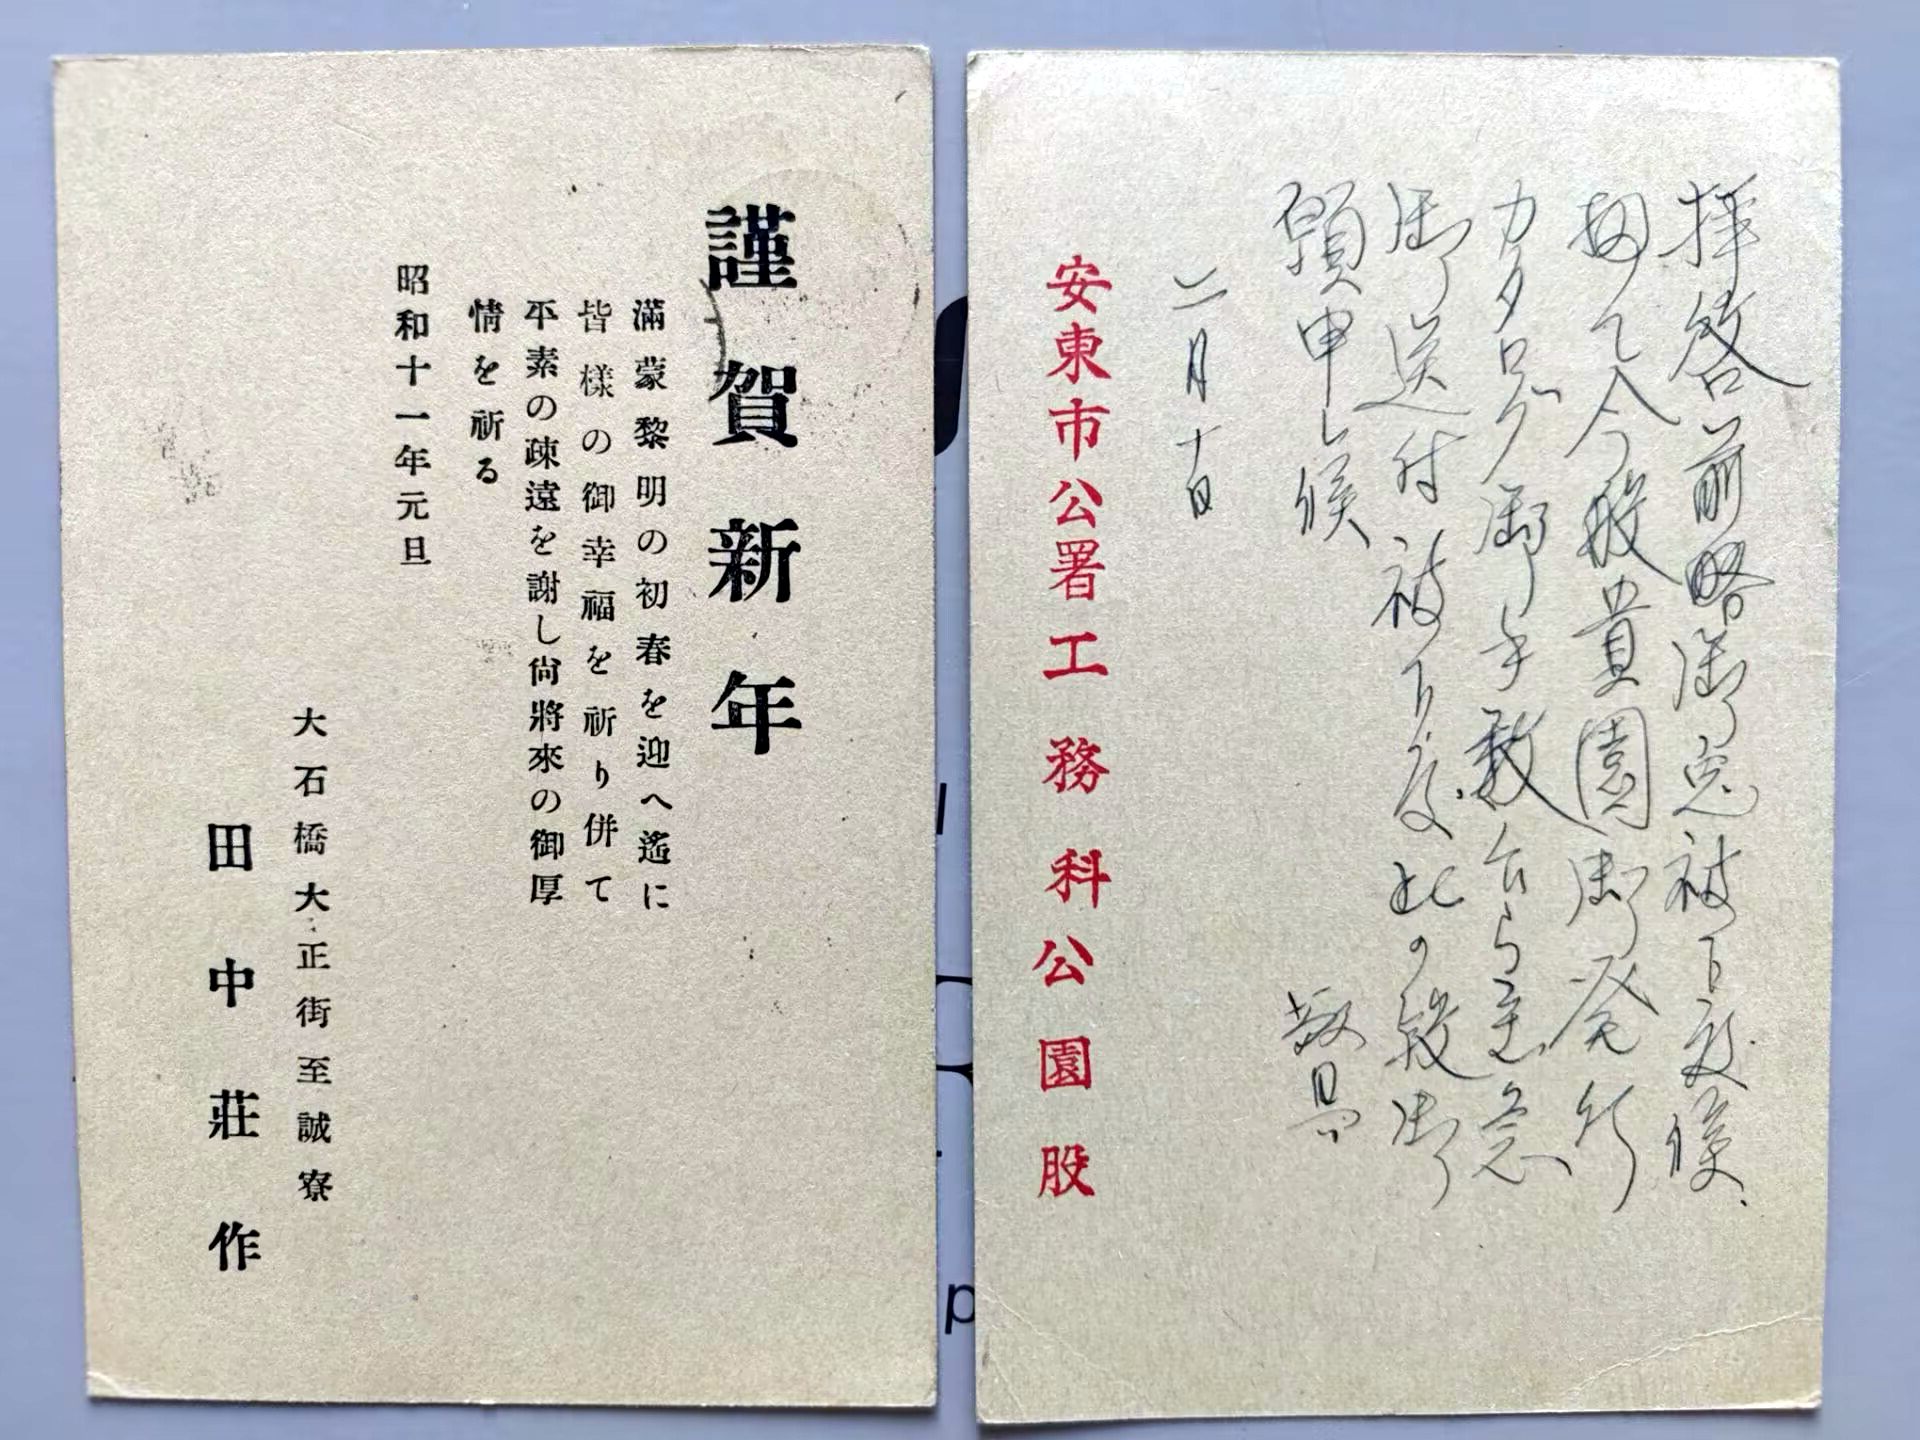 謹賀新年
滿蒙黎明の初春を迎へ遙に
皆樣の御幸福を祈り併て
平素の疎遠を謝し尙將來の御厚
情を祈る
昭和十一年元旦
大石橋大正街至誠寮
田中莊作
拝啓前略御免被下度候
扨て今般貴園御発行
カタログ御手数乍ら至急
御送付被下度此の段御
願申し候
敬具
二月十日
安東市公署工務科公園股
p